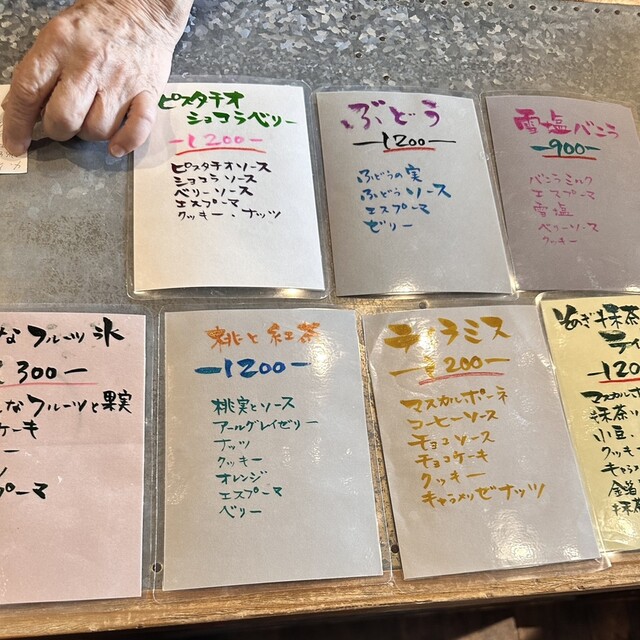 ピスタチオ
ショコラベリー
-1200-
ピスタチオソース
ショコラソース
ベリーソース
エスプーマ
クッキー・ナッツ
ぶどう
-1200-
ぶどうの実
ぶどうソース
エスプーマ
ゼリー
雪塩バニラ
-900-
バニラミルク
エスプーマ
雪塩
ベリーソース
クッキー
なフルーツ氷
300-
なフルーツと果実
ケーキ
ー
プーマ
桃と紅茶
-1200-
桃実とソース
アールグレイゼリー
ナッツ
クッキー
オレンジ
エスプーマ
ベリー
ティラミス
200-
マスカルポーネ
コーヒーソース
チョコソース
チョコケーキ
クッキー
キャラメリゼナッツ
抹茶
ティ
-120
マスカルポ
抹茶
小豆
クッキ
キャラ
抹茶